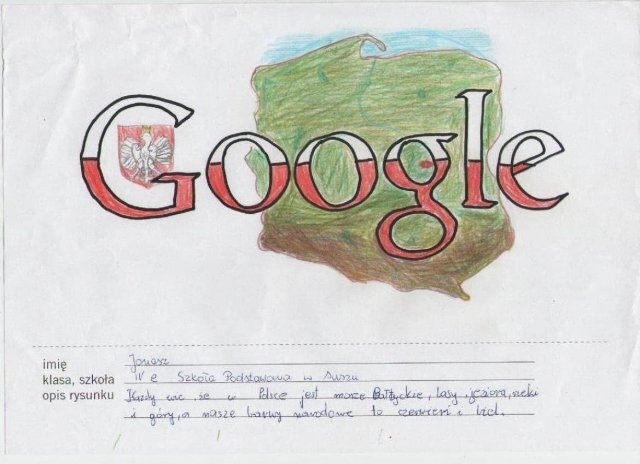 Google
imię
klasa, szkoła IV e Szkoła Podstawowa w Suszu
opis rysunku Każdy wie, że w Polsce jest morze Bałtyckie, lasy, jeziora, rzeki
i góry, a nasze barwy narodowe to czerwień i biel.